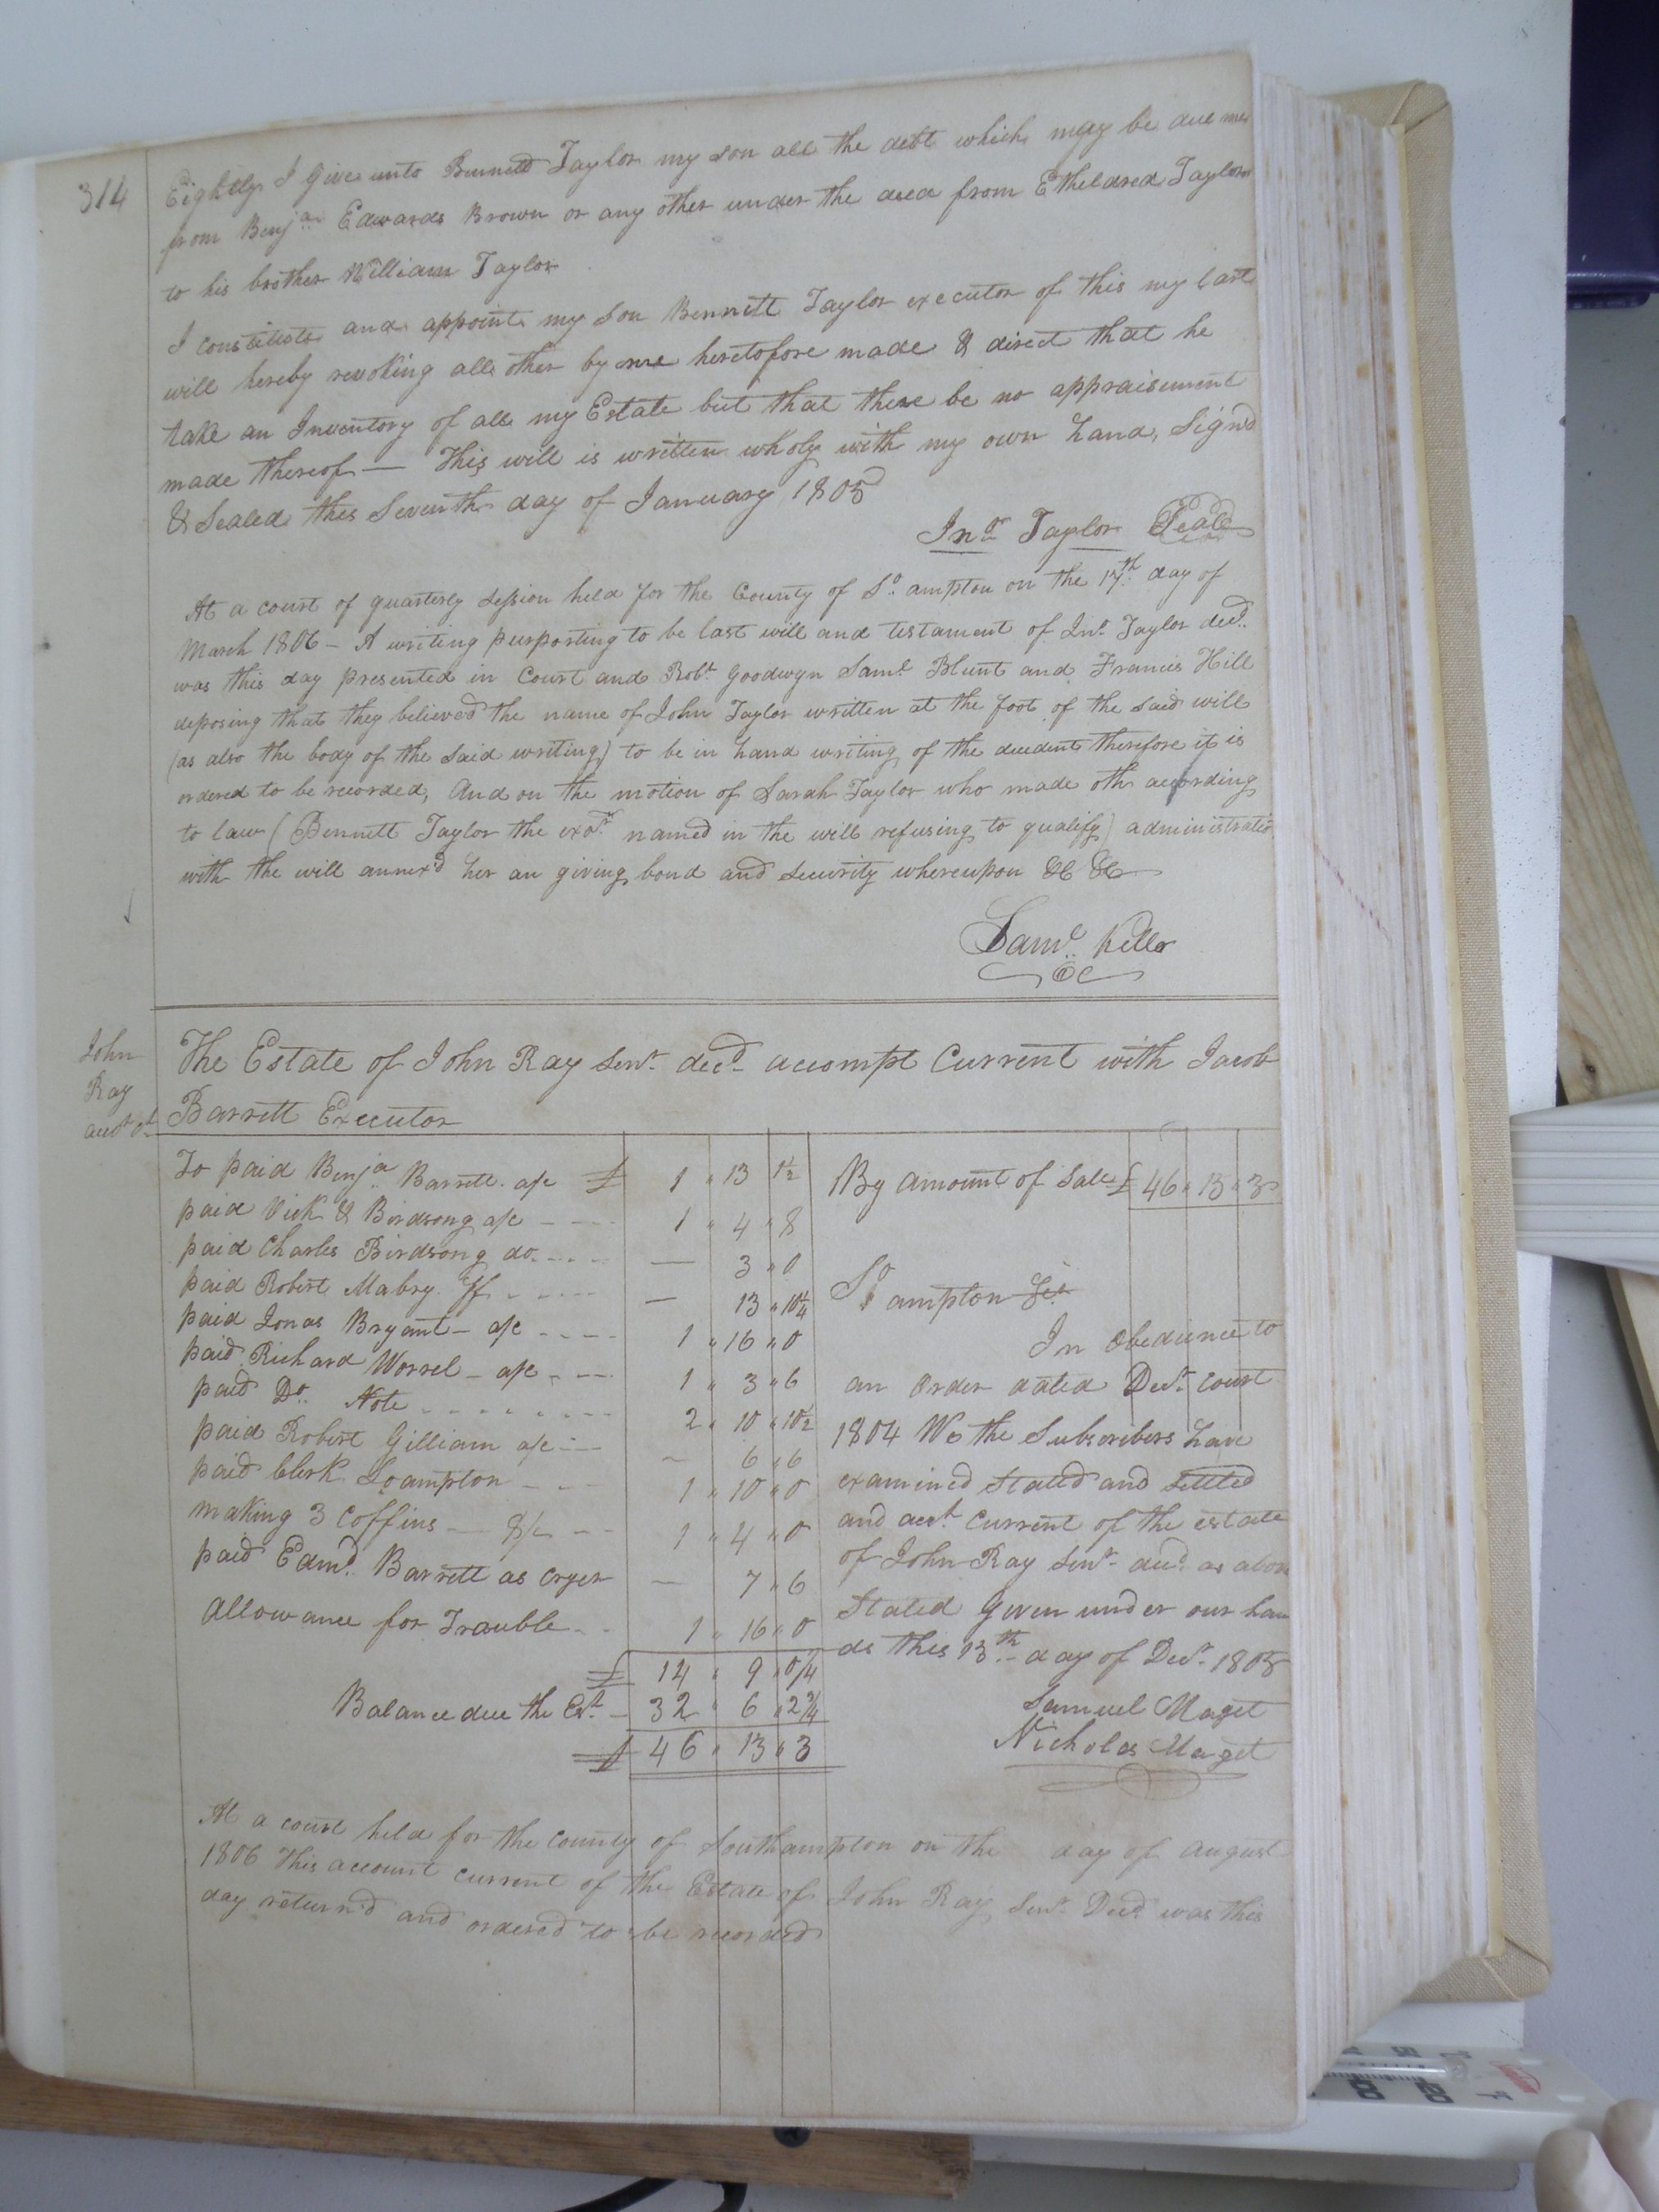 314
Eightly I Give unto Bennett Taylor my son all the debt which may be due me
from Benja. Edwards Brown or any other under the deed from Etheldred Taylor
to his brother William Taylor
I constitute and appoint my son Bennett Taylor executor of this my last
will hereby revoking all other by me heretofore made & direct that he
take an Inventory of all my Estate but that there be no appraisement
made thereof — This will is written wholy with my own hand, Sign'd
& Sealed this Seventh day of January 1805
Jno. Taylor Seal
At a court of quarterly session held for the County of So.ampton on the 17th. day of
March 1806 – A writing purporting to be last will and testament of Jno. Taylor decd.
was this day presented in Court and Robt. Goodwyn Saml. Blunt and Francis Hill
deposing that they believed the name of John Taylor written at the foot of the said will
(as also the body of the said writing) to be in hand writing of the decedent therefore it is
ordered to be recorded, And on the motion of Sarah Taylor who made oth according
to law (Bennett Taylor the exor. named in the will refusing to qualify) administratio
with the will annex'd her an giving bond and security whereupon &c &c
Saml. Kello
CC
John
Ray
The Estate of John Ray Senr. decd. accompt Current with Jacob
Barrett Executor
To paid Benja. Barrett a/c £ 1 " 13 1½
paid Vick & Birdsong a/c 1 " 4 " 8
paid Charles Birdsong do. — 3 " 0
paid Robert Mabry — 13 " 10¼
paid Jonas Bryant – a/c 1 " 16 " 0
paid Richard Worrel – a/c 1 " 3 " 6
paid Do. Note 2 " 10 " 10½
paid Robert Gilliam a/c — 6 " 6
paid Clerk Soampton 1 " 10 " 0
making 3 Coffins — 8/ 1 " 4 " 0
paid Edmd. Barrett as Cryer — 7 " 6
Allowance for Trouble 1 " 16 " 0
£ 14 " 9 " 0/4
Balance due the Est. – 32 " 6 " 2¾
£ 46 " 13 " 3
By Amount of Sale £ 46 " 13 " 3
So ampton
In Obedience to
an Order dated Decr. Court
1804 We the Subscribers have
examined Stated and settled
and acct. Current of the estate
of John Ray Senr. decd. as above
Stated Given under our han
ds this 13th. day of Decr. 1805
Samuel Maget
Nicholas Maget
At a court held for the County of Southampton on the day of August
1806 This account current of the Estate of John Ray Senr. Decd. was this
day return'd and ordered to be recorded